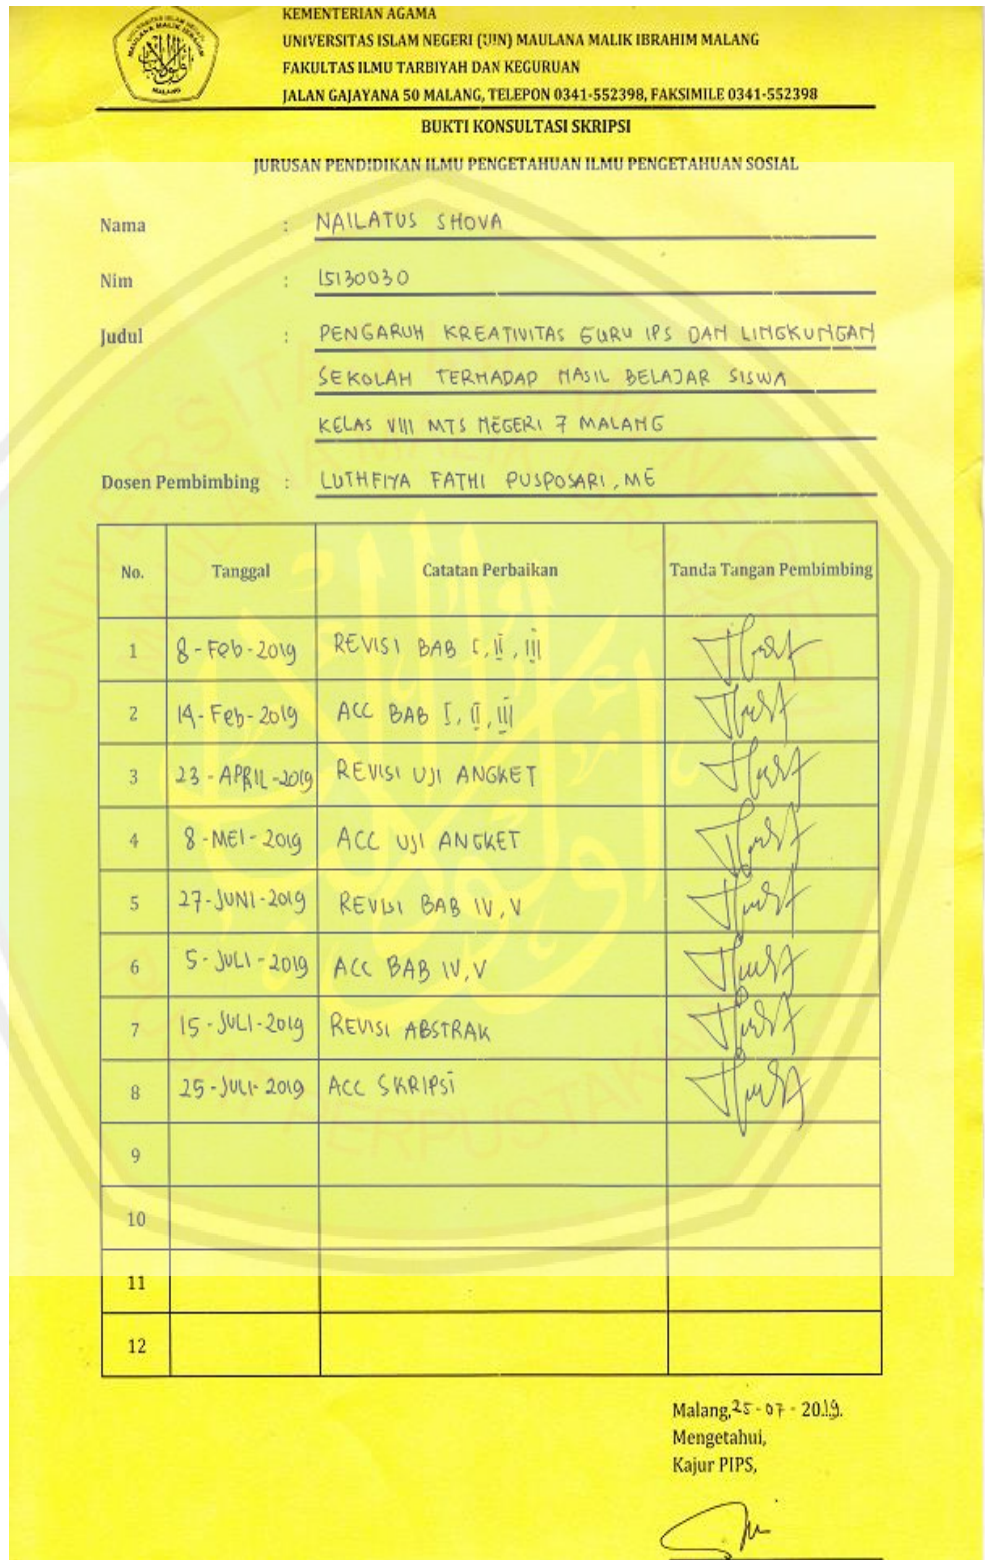 KEMENTERIAN AGAMA
UNIVERSITAS ISLAM NEGERI (UIN) MAULANA MALIK IBRAHIM MALANG
FAKULTAS ILMU TARBIYAH DAN KEGURUAN
JALAN GAJAYANA 50 MALANG, TELEPON 0341-552398, FAKSIMILE 0341-552398
BUKTI KONSULTASI SKRIPSI
JURUSAN PENDIDIKAN ILMU PENGETAHUAN ILMU PENGETAHUAN SOSIAL
Nama : NAILATUS SHOVA
Nim : 15130030
Judul : PENGARUH KREATIVITAS GURU IPS DAN LINGKUNGAN
SEKOLAH TERHADAP HASIL BELAJAR SISWA
KELAS VIII MTS NEGERI 7 MALANG
Dosen Pembimbing : LUTHFIYA FATHI PUSPOSARI, ME
No. Tanggal Catatan Perbaikan Tanda Tangan Pembimbing
1 8-Feb-2019 REVISI BAB I, II, III
2 14-Feb-2019 ACC BAB I, II, III
3 23-APRIL-2019 REVISI UJI ANGKET
4 8-MEI-2019 ACC UJI ANGKET
5 27-JUNI-2019 REVISI BAB IV, V
6 5-JULI-2019 ACC BAB IV, V
7 15-JULI-2019 REVISI ABSTRAK
8 25-JULI-2019 ACC SKRIPSI
9
10
11
12
Malang, 25-07-2019.
Mengetahui,
Kajur PIPS,